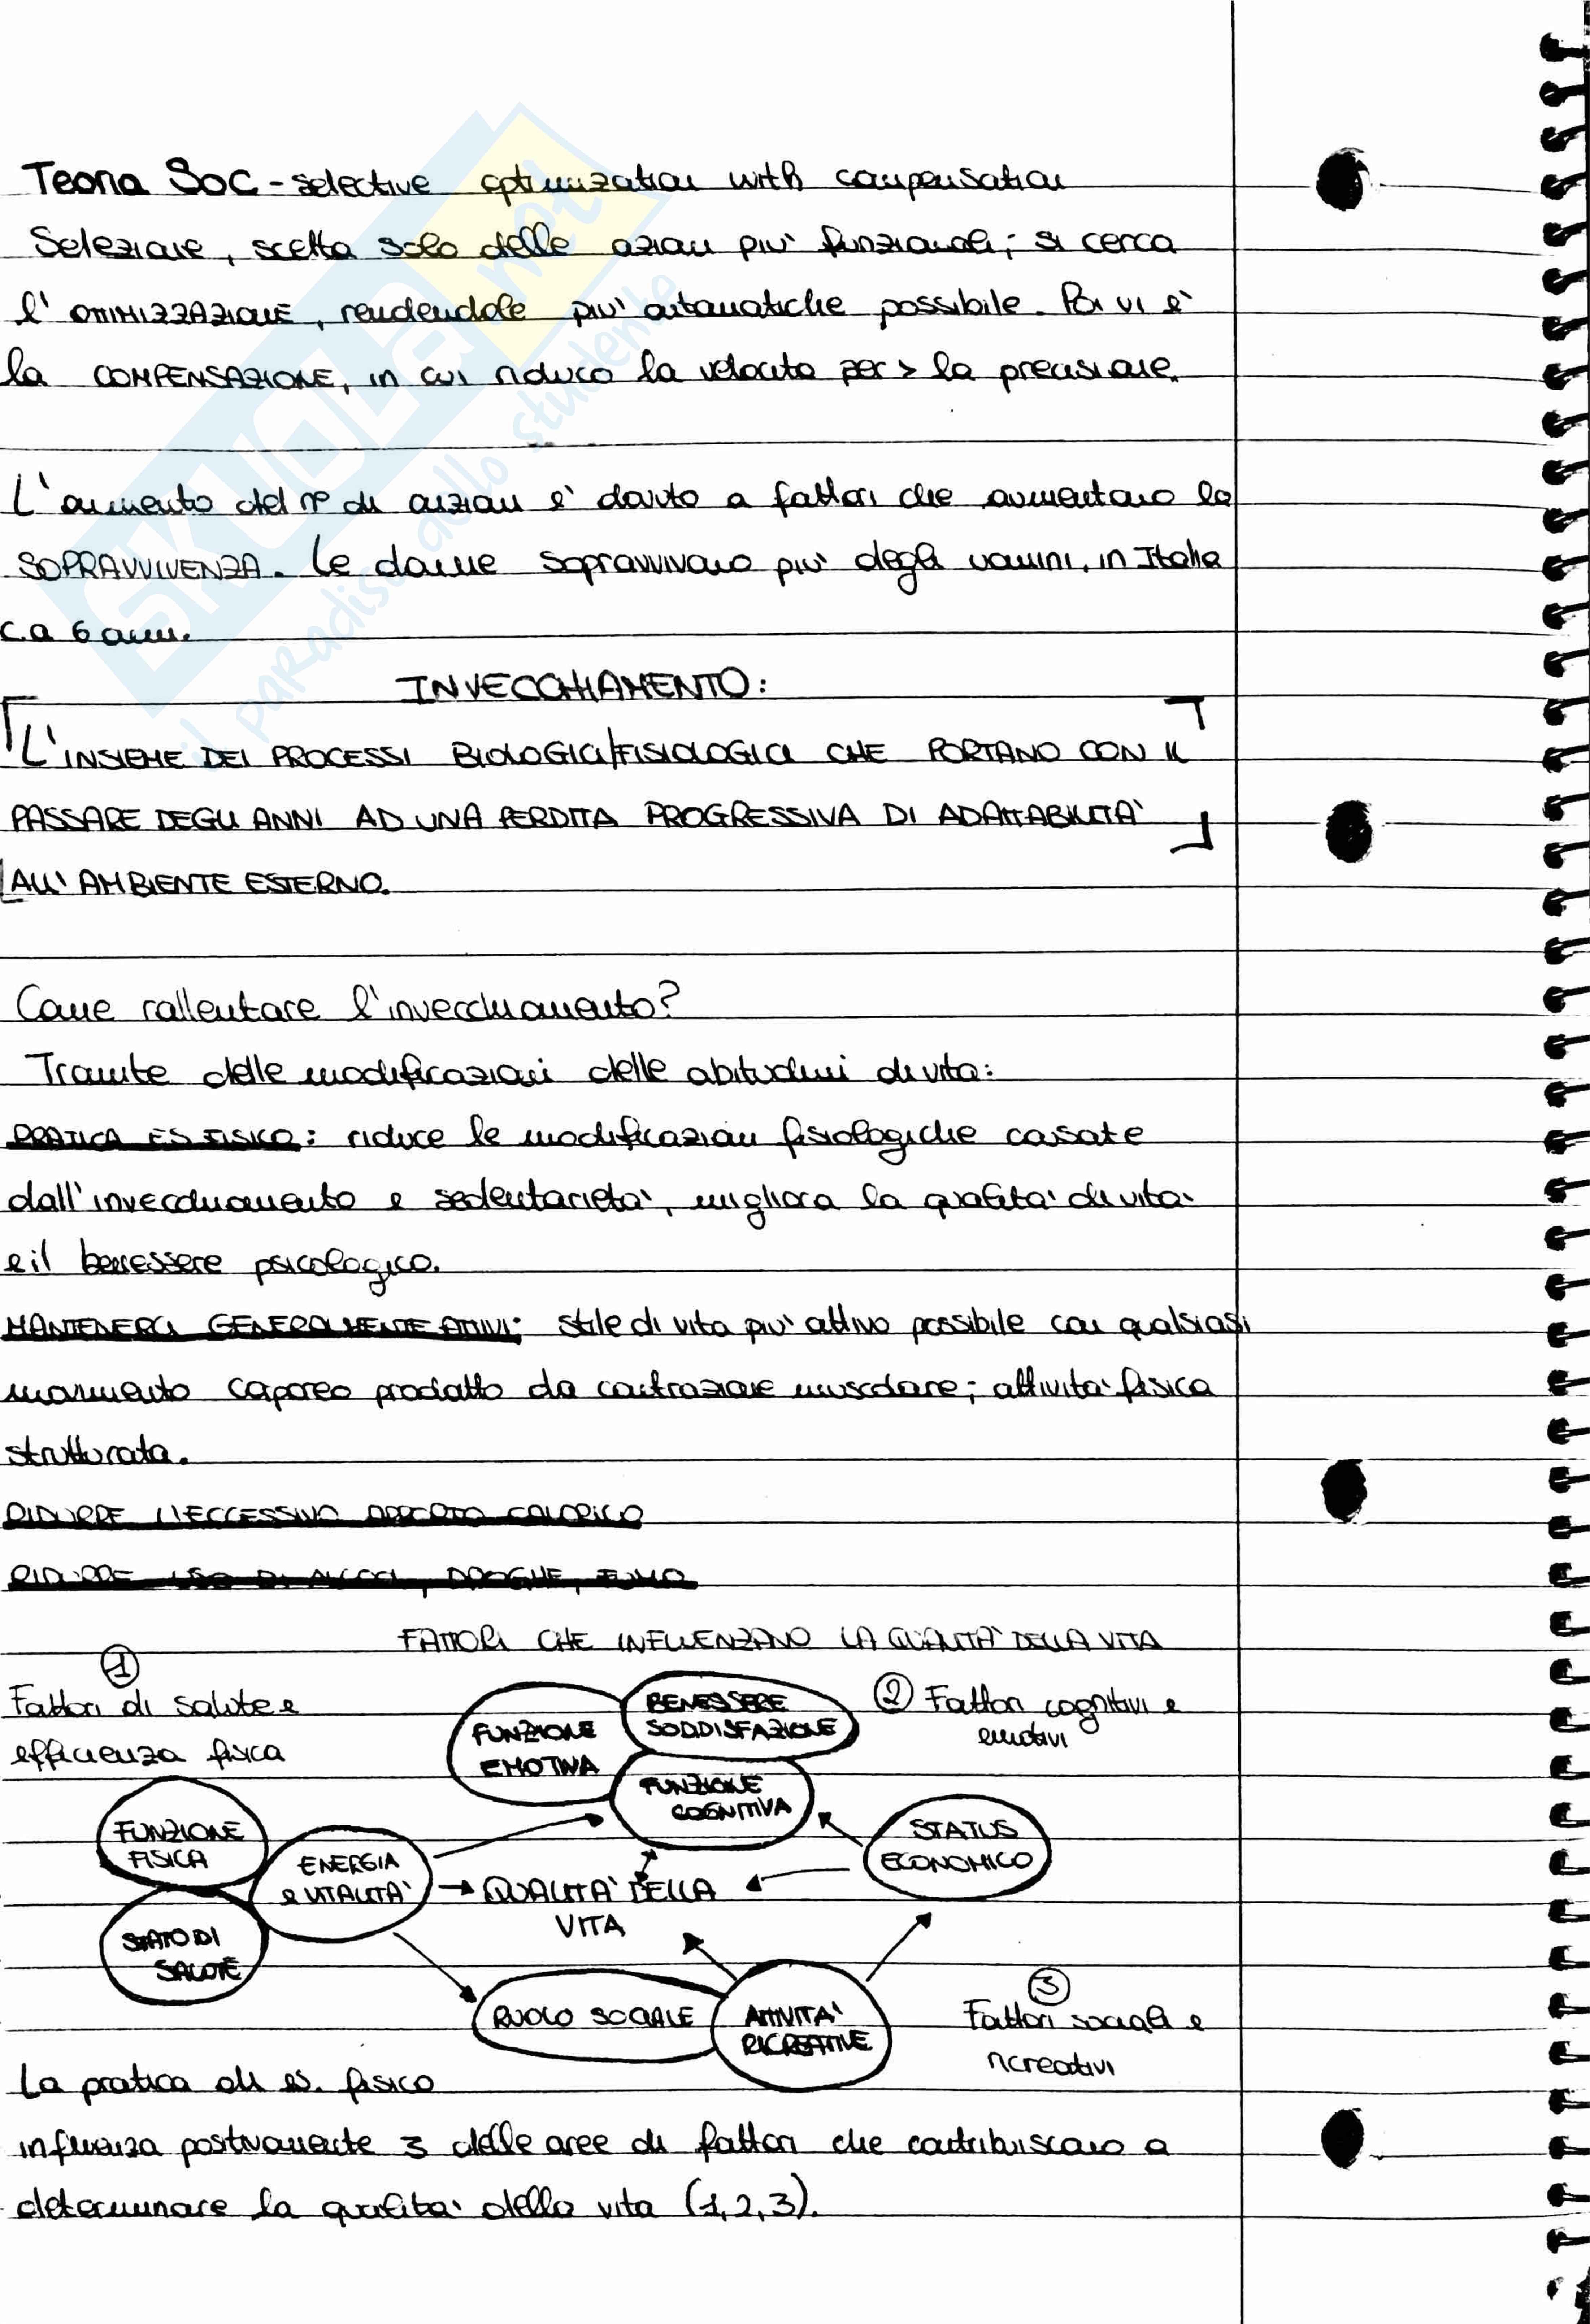 Teoria SOC - selective optimization with compensation
Selezione, scelta solo delle azioni più funzionali; si cerca
l'OTTIMIZZAZIONE, rendendole più automatiche possibile. Poi vi è
la COMPENSAZIONE, in cui riduco la velocità per > la precisione.
L'aumento del n° di anziani è dovuto a fattori che aumentano la
SOPRAVVIVENZA. Le donne sopravvivono più degli uomini, in Italia
c.a 6 anni.
INVECCHIAMENTO:
L'INSIEME DEI PROCESSI BIOLOGICI/FISIOLOGICI CHE PORTANO CON IL
PASSARE DEGLI ANNI AD UNA PERDITA PROGRESSIVA DI ADATTABILITÀ
ALL'AMBIENTE ESTERNO.
Come rallentare l'invecchiamento?
Tramite delle modificazioni delle abitudini di vita:
PRATICA ES FISICO: riduce le modificazioni fisiologiche casate
dall'invecchiamento e sedentarietà, migliora la qualità di vita
e il benessere psicologico.
MANTENERCI GENERALMENTE ATTIVI: stile di vita più attivo possibile con qualsiasi
movimento caporeo prodotto da contrazione muscolare; attività fisica
strutturata.
RIDURRE L'ECCESSIVO APPORTO CALORICO
RIDURRE USO DI ALCOOL, DROGHE, FUMO
FATTORI CHE INFLUENZANO LA QUALITÀ DELLA VITA
1
Fattori di salute e
efficienza fisica
FUNZIONE
EMOTIVA
BENESSERE
SODDISFAZIONE
2 Fattori cognitivi e
emotivi
FUNZIONE
COGNITIVA
FUNZIONE
FISICA
ENERGIA
e VITALITÀ
STATUS
ECONOMICO
QUALITÀ DELLA
VITA
STATO DI
SALUTE
RUOLO SOCIALE
ATTIVITÀ
RICREATIVE
3
Fattori sociali e
ricreativi
La pratica di es. fisico
influenza positivamente 3 delle aree di fattori che contribuiscono a
determinare la qualità della vita (1,2,3).
SKUOLA.net
il paradiso dello studente